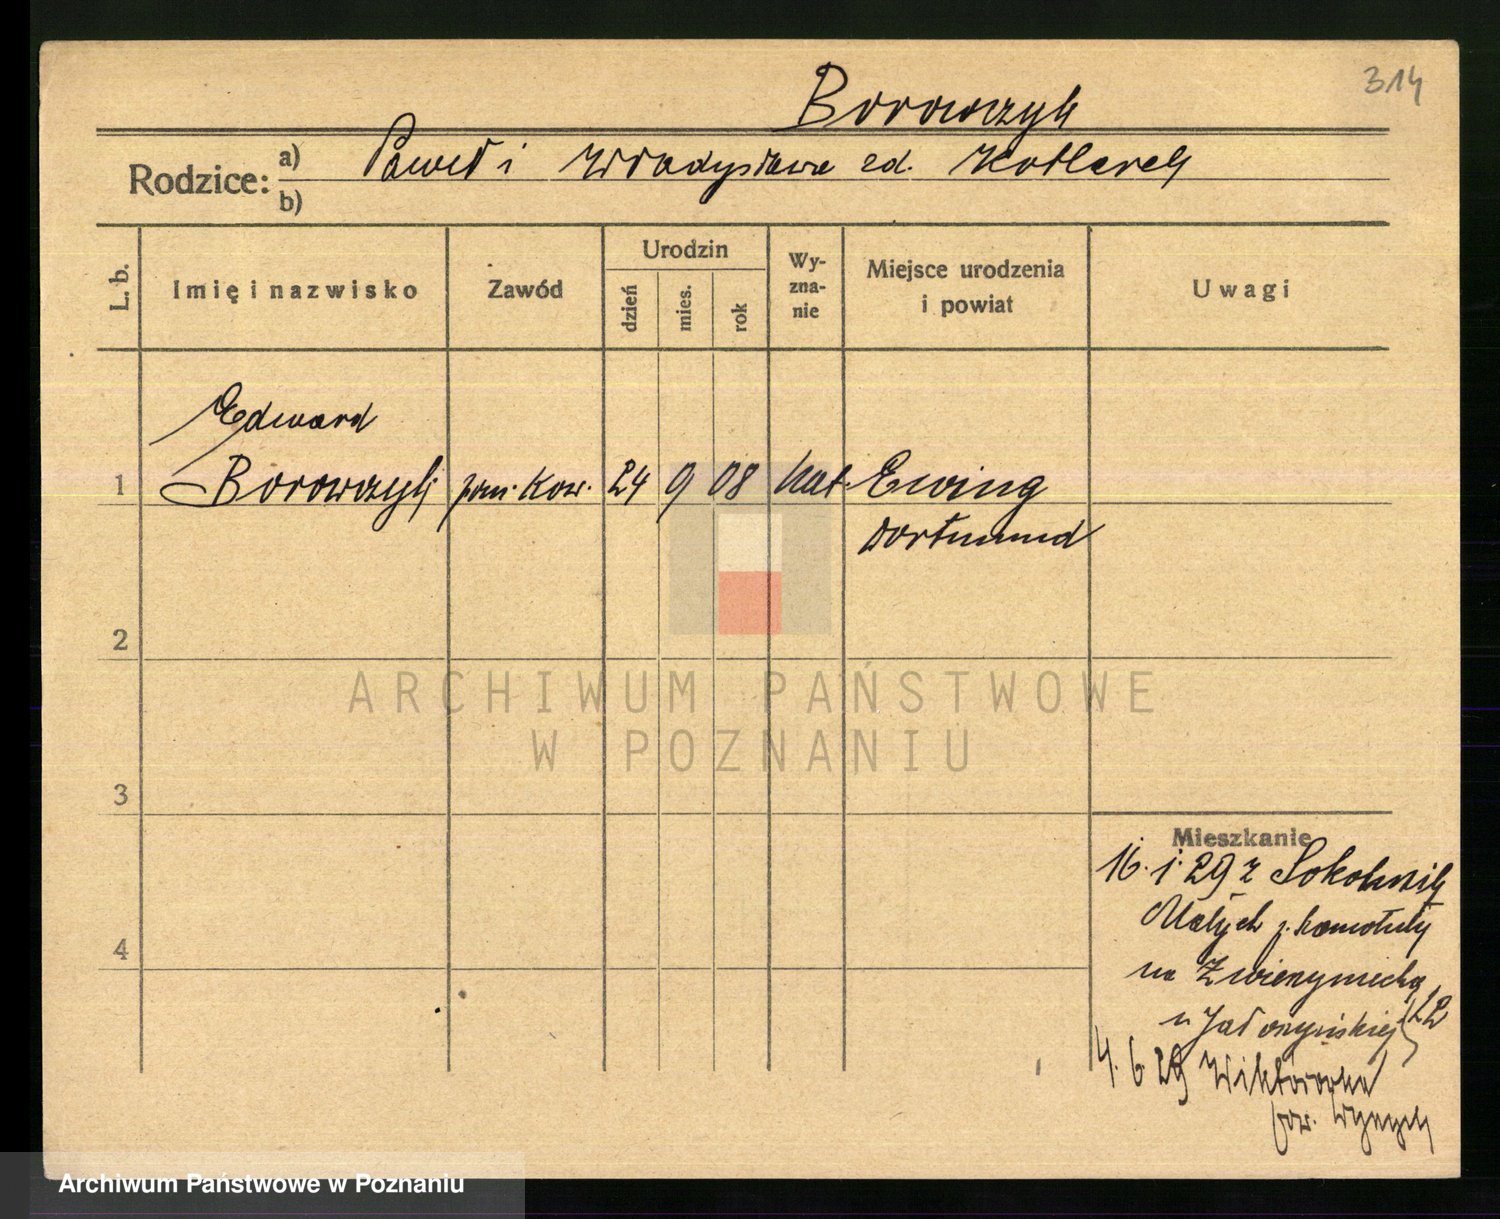 314
Borowczyk
Rodzice: a) Paweł i Władysława zd. Kotlarek
b)
L. b. Imię i nazwisko Zawód Urodzin dzień mies. rok Wyznanie Miejsce urodzenia i powiat Uwagi
Edward
1 Borowczyk pom. kow. 24 9 08 kat. Ewing
Dortmund
2
ARCHIWUM PAŃSTWOWE
W POZNANIU
3
Mieszkanie
16. 1. 29 z Sokolnik
Małych p. Szamotuły
4
na Zwierzyniecką 22
u
4. 6. 29 Wiktorowo
pow. Wyrzysk
Archiwum Państwowe w Poznaniu